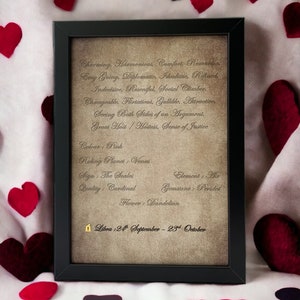 Charming, Harmonious, Comfort, Romantic,
Easy Going, Diplomatic, Idealistic, Refined,
Indecisive, Resentful, Social Climber,
Changeable, Flirtatious, Gullible, Attractive,
Seeing Both Sides of an Argument,
Great Host / Hostess, Sense of Justice
Colour : Pink
Ruling Planet : Venus
Sign : The Scales Element : Air
Quality : Cardinal Gemstone : Peridot
Flower : Dandelion
Libra : 24th September - 23rd October